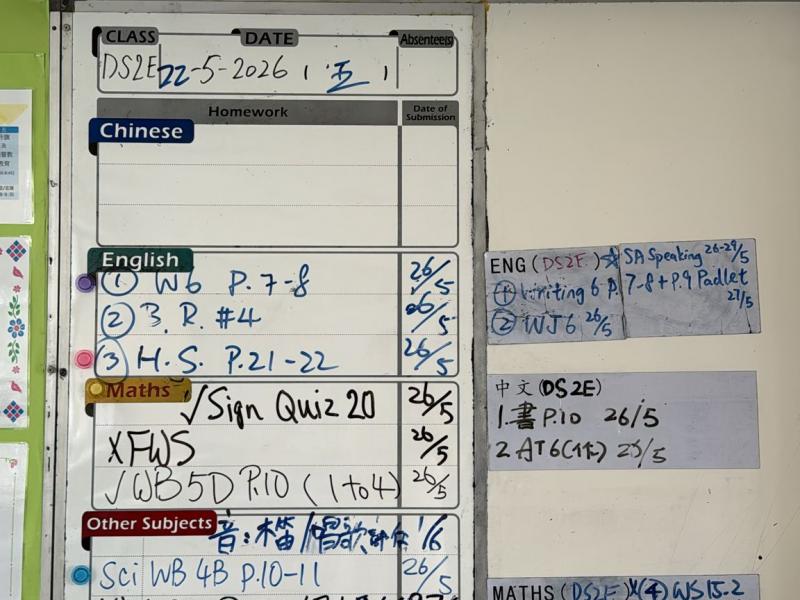 CLASS DATE Absentees
DS2E 22-5-2026 (五)
Homework Date of Submission
Chinese
English
① W6 P.7-8 26/5
② B.R. #4 26/5
③ H.S. P.21-22 26/5
Maths √Sign Quiz 20 26/5
XFWS 26/5
√WB5D P.10 (1to4) 26/5
Other Subjects 音: 笛/唱歌 1/6
Sci WB 4B P.10-11 26/5
ENG (DS2E) ☆ SA Speaking 26-29/5
① Writing 6 P. 7-8 + P.9 Padlet 27/5
② WJ6 26/5
中文 (DS2E)
1.書 P.10 26/5
2 AT6 26/5
MATHS (DS2E) (4) WS15-2